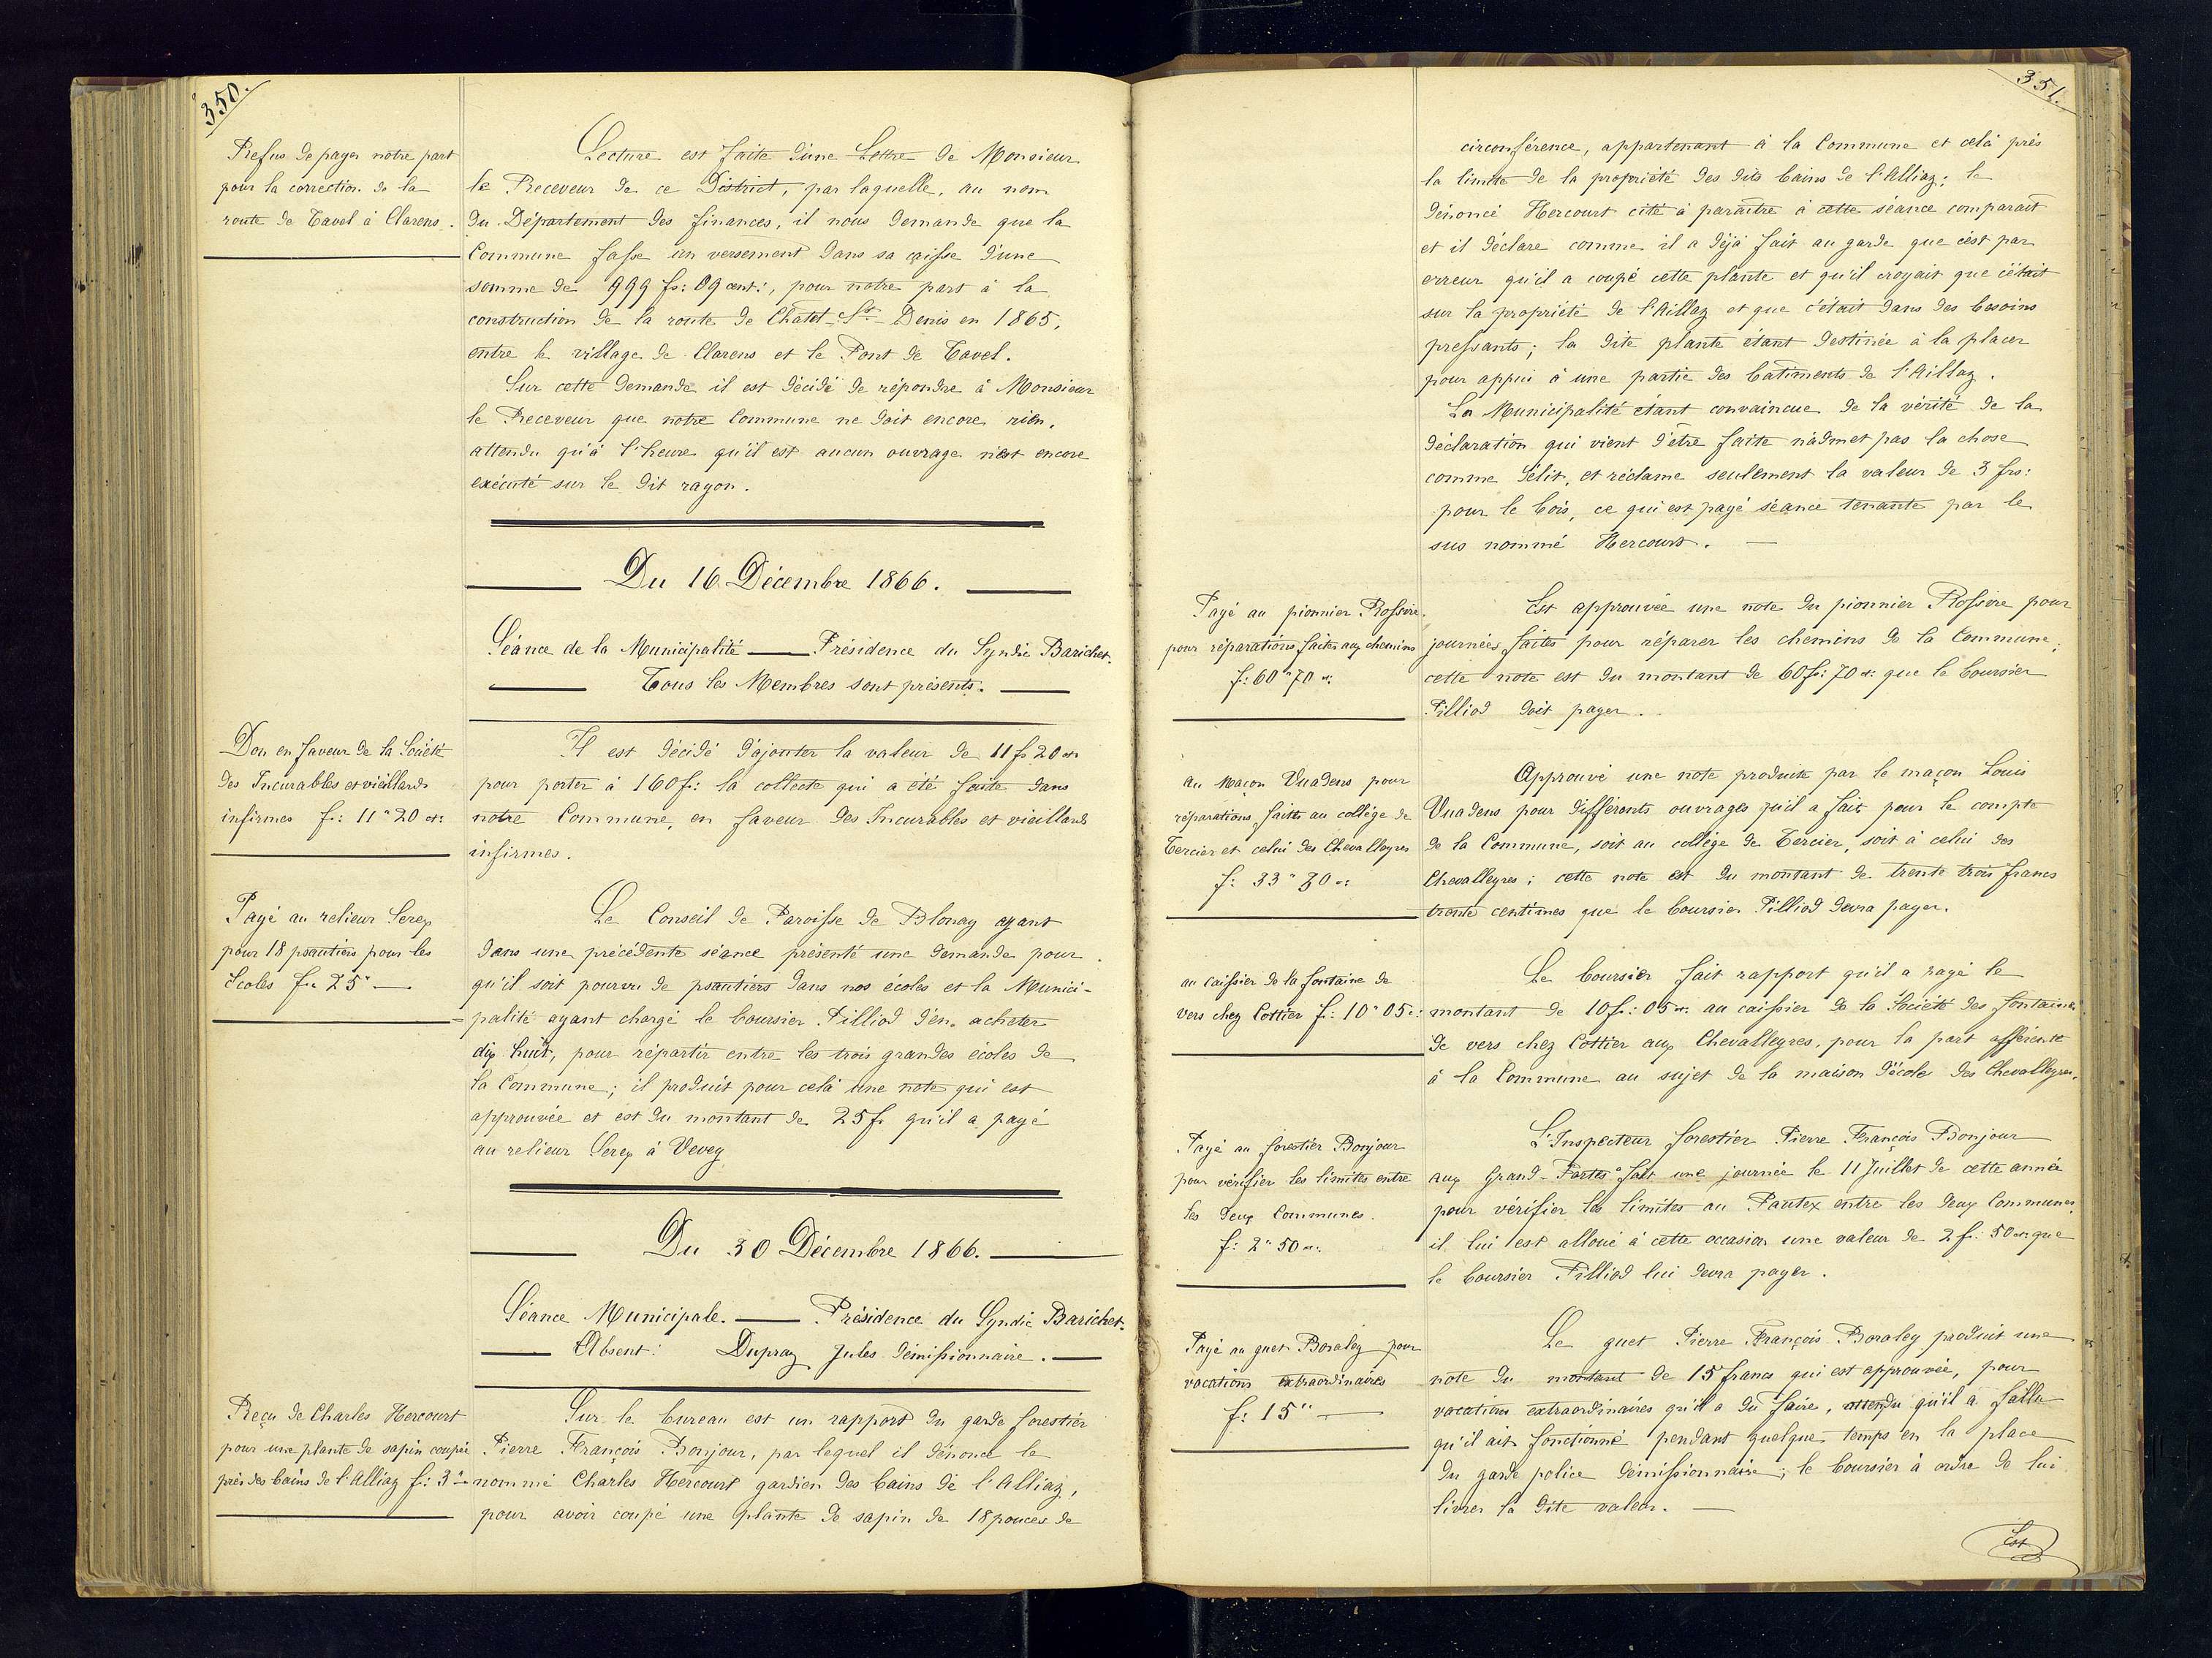 350.
Refus de payer notre part
pour la correction de la
route de Tavel à Clarens.
Lecture est faite d'une Lettre de Monsieur
le Receveur de ce District, par laquelle, au nom
du Département des finances, il nous demande que la
Commune fasse un versement dans sa caisse d'une
somme de 999 fr: 09 cent:, pour notre part à la
construction de la route de Chatel-St-Denis en 1865,
entre le village de Clarens et le Pont de Tavel.
Sur cette demande il est décidé de répondre à Monsieur
le Receveur que notre Commune ne doit encore rien,
attendu qu'à l'heure qu'il est aucun ouvrage n'est encore
exécuté sur le dit rayon.
Du 16 Décembre 1866.
Séance de la Municipalité — Présidence du Syndic Barichet.
Tous les Membres sont présents.
Don en faveur de la Société
des Incurables et vieillards
infirmes f: 11" 20 ct:
Il est décidé d'ajouter la valeur de 11 fr 20 ct
pour porter à 160 f: la collecte qui a été faite dans
notre Commune, en faveur des Incurables et vieillards
infirmes.
Payé au relieur Serex
pour 18 psautiers pour les
Ecoles fr 25" —
Le Conseil de Paroisse de Blonay ayant
dans une précédente séance présenté une demande pour
qu'il soit pourvu de psautiers dans nos écoles et la Munici-
palité ayant chargé le boursier Pilliod d'en acheter
dix huit, pour répartir entre les trois grandes écoles de
la Commune; il produit pour celà une note qui est
approuvée et est du montant de 25 fr qu'il a payé
au relieur Serex à Vevey
Du 30 Décembre 1866.
Séance Municipale. — Présidence du Syndic Barichet.
Absent: Dupraz Jules démissionnaire.
Reçu de Charles Hercourt
pour une plante de sapin coupée
près des bains de l'Alliaz f: 3" —
Sur le bureau est un rapport du garde forestier
Pierre François Bonjour, par lequel il dénonce le
nommé Charles Hercourt gardien des bains de l'Alliaz,
pour avoir coupé une plante de sapin de 18 pouces de
351.
circonférence, appartenant à la Commune et celà près
la limite de la propriété des dits bains de l'Alliaz; le
dénoncé Hercourt cité à paraître à cette séance comparait
et il déclare comme il a déjà fait au garde que c'est par
erreur qu'il a coupé cette plante et qu'il croyait que c'était
sur la propriété de l'Aillaz et que c'était dans des besoins
pressants; la dite plante étant destinée à la placer
pour appui à une partie des batiments de l'Aillaz.
La Municipalité étant convaincue de la vérité de la
déclaration qui vient d'être faite n'admet pas la chose
comme délit, et réclame seulement la valeur de 3 frs:
pour le bois, ce qui est payé séance tenante par le
sus nommé Hercourt. —
Payé au pionnier Rossire
pour réparations faites aux chemins
f: 60" 70 ct:
Est approuvée une note du pionnier Rossire pour
journées faites pour réparer les chemins de la Commune;
cette note est du montant de 60 fr: 70 ct: que le boursier
Pilliod doit payer.
au Maçon Vuadens pour
réparations faites au collége de
Tercier et celui des Chevalleyres
f: 33" 30 ct:
Approuvé une note produite par le maçon Louis
Vuadens pour différents ouvrages qu'il a fait pour le compte
de la Commune, soit au collége de Tercier, soit à celui des
Chevalleyres; cette note est du montant de trente trois francs
trente centimes que le boursier Pilliod devra payer.
au Caissier de la fontaine de
vers chez Cottier f: 10" 05 c:
Le boursier fait rapport qu'il a payé le
montant de 10 fr: 05 ct: au caissier de la Société des fontaines
de vers chez Cottier aux Chevalleyres, pour la part afférente
à la Commune au sujet de la maison d'école des Chevalleyres.
Payé au forestier Bonjour
pour vérifier les limites entre
les deux Communes.
f: 2" 50 ct:
L'Inspecteur forestier Pierre François Bonjour
aux Grand-Partès fait une journée le 11 Juillet de cette année
pour vérifier les limites au Pautex entre les deux Communes,
il lui est alloué à cette occasion une valeur de 2 fr: 50 ct: que
le boursier Pilliod lui devra payer.
Payé au guet Boraley pour
vacations extraordinaires
f: 15" —
Le guet Pierre François Boraley produit une
note du montant de 15 francs qui est approuvée, pour
vacations extraordinaires qu'il a du faire, attendu qu'il a fallu
qu'il ait fonctionné pendant quelque temps en la place
du garde police démissionnaire; le boursier à ordre de lui
livrer la dite valeur. —
Est